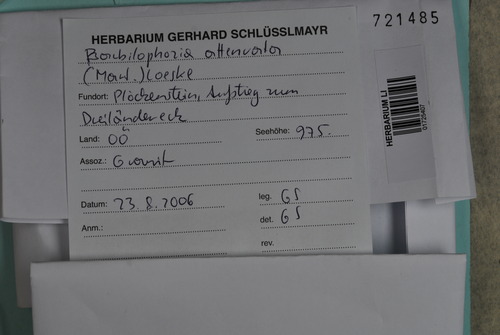 HERBARIUM GERHARD SCHLÜSSLMAYR
721485
Barbilophozia attenuata
(Mart.) Loeske
Fundort: Plöckenstein, Aufstieg zum
Dreiländereck
Land: OÖ Seehöhe: 975.
Assoz.: Granit
Datum: 23.8.2006 leg. GS
Anm.: det. GS
rev.
HERBARIUM LI